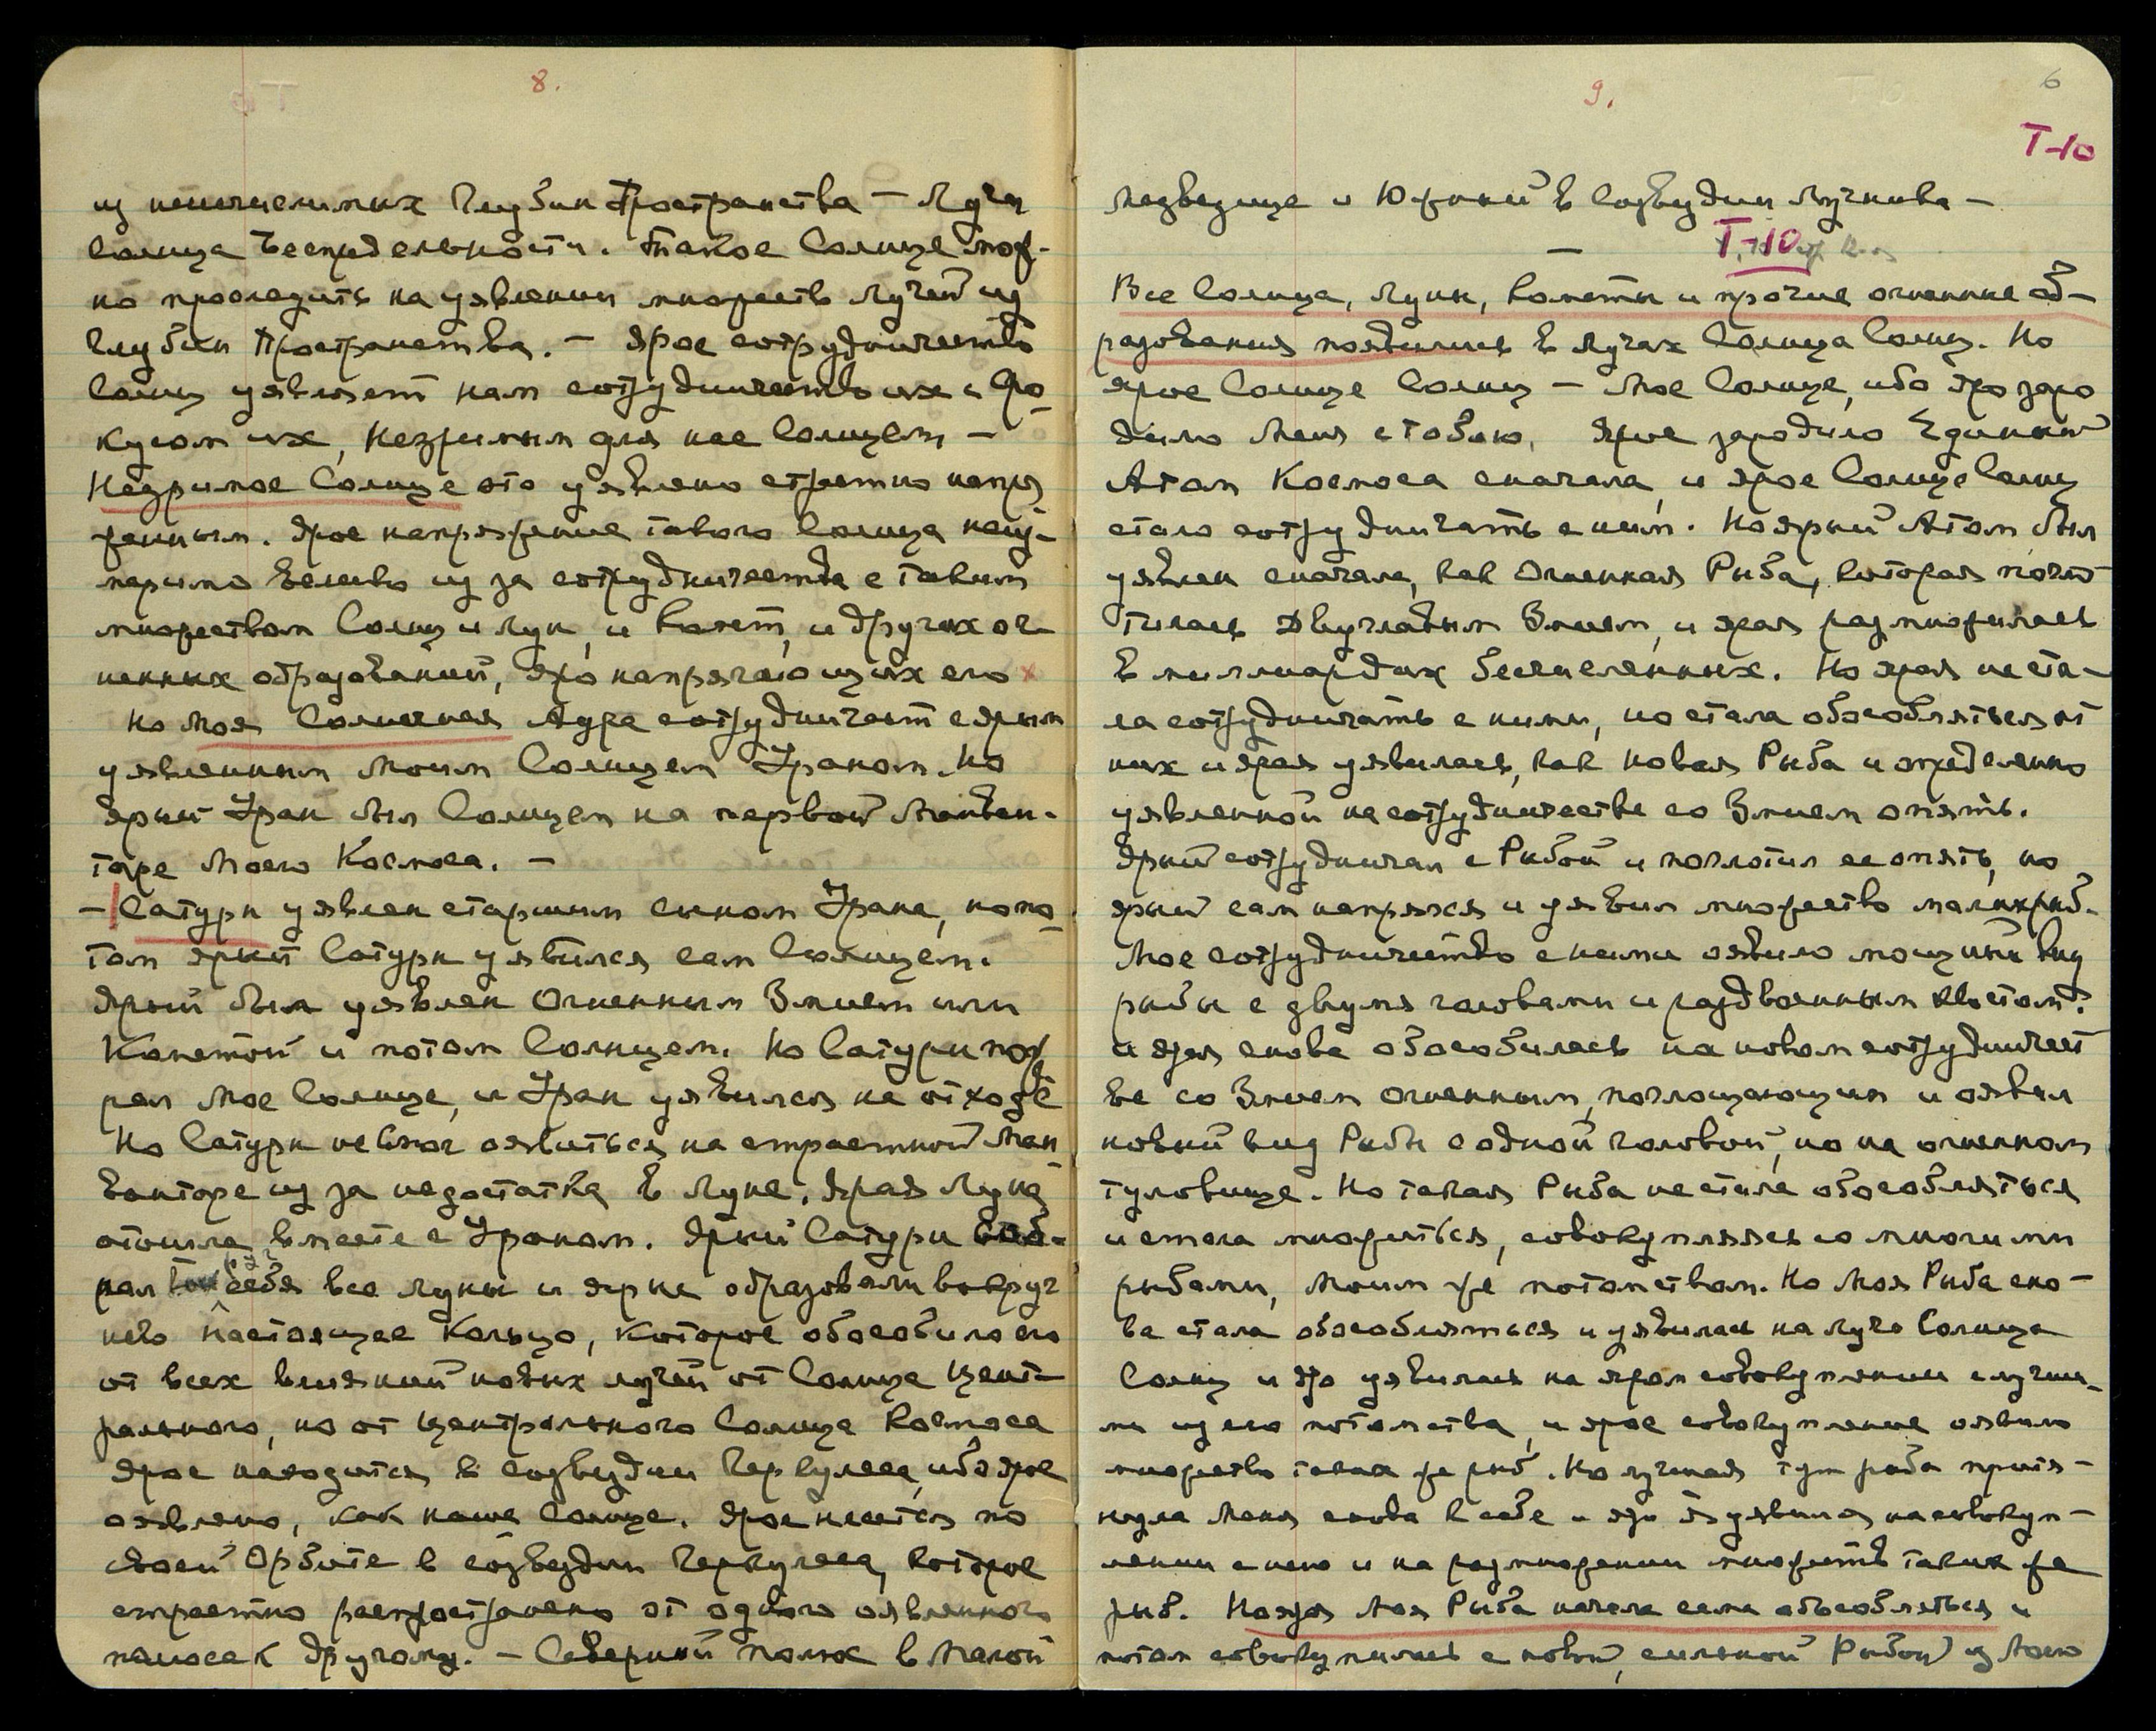 8.
из неисчислимых глубин Пространства — Луча
Солнца Беспредельности. Такое Солнце мож-
но проследить на уявлении множеств Лучей из
глубин Пространства. — Ярое сотрудничество
Солнц уявляет нам сотрудничество их с Фо-
кусом их, Незримым для нас Солнцем, —
Незримое Солнце это уявлено страстно напря
женным. Ярое напряжение такого Солнца неиз-
меримо велико из за сотрудничества с таким
множеством Солнц и Лун, и Комет, и других ог-
ненных образований, яро напрягающих его x
Но Моя Солнечная Аура сотрудничает с ярым
уявленным Моим Солнцем Ураном. Но
ярый Уран был Солнцем на первой Манван-
таре Моего Космоса. —
— Сатурн уявлен старшим сыном Урана, но по-
том ярый Сатурн уявился сам Солнцем.
Ярый был уявлен Огненным Змием или
Кометой и потом Солнцем. Но Сатурн пож
рал Мое Солнце, и Уран уявился на отходе
Но Сатурн не смог оявиться на страстной Ман
вантаре из за недостатка в Луне. Ярая Луна
отошла вместе с Ураном. Ярый Сатурн соб-
рал себя все луны и ярые образовали вокруг
него Настоящее Кольцо, которое обособило его
от всех влияний новых лучей от Солнца Цент-
рального, но от Центрального Солнца Космоса
Ярое находится в созвездии Геркулеса, ибо ярое
оявлено, как наше Солнце. Ярое несется по
своей Орбите в созвездии Геркулеса, которое
страстно распространено от одного оявленного
полюса к другому. — Северный полюс в Малой
9.
6
Т-10
Медведице и Южный в созвездии Лучника —
—
Т-10
Все Солнца, Луны, Кометы и прочие огненные об-
разования появились в лучах Солнца Солнц. Но
ярое Солнце Солнц — Мое Солнце, ибо яро заро
дило Меня с тобою. Ярое зародило Единый
Атом Космоса сначала, и ярое Солнце Солнц
стало сотрудничать с ним. Но ярый Атом был
уявлен сначала, как Огненная Рыба, которая погло
тилась Двуглавым Змием, и ярая размножилась
в миллиардах бесчисленных. Но ярая не ста-
ла сотрудничать с ними, но стала обособляться от
них и ярая уявилась, как новая Рыба и определенно
уявленной на сотрудничестве со Змием опять.
Ярый сотрудничал с Рыбой и поглотил ее опять, но
ярый сам напрягся и уявил множество малых рыб.
Мое сотрудничество с ними оявило мощный вид
рыбы с двумя головами и раздвоенным хвостом.
и ярая снова обособилась на новом сотрудничест
ве со Змием Огненным, поглощающим и оявил
новый вид Рыбы с одной головой, но на огненном
туловище. Но такая Рыба не стала обособляться
и стала множиться, совокупляясь со многими
рыбами, Моим же потомством. Но Моя Рыба сно-
ва стала обособляться и уявилась на Луче Солнца
Солнц и яро уявилась на яром совокуплении с лучши-
ми из его потомства, и ярое совокупление оявило
множество таких же рыб. Но лучшая тут рыба притя-
нула Меня снова к себе и яро Я уявился на совокуп-
лении с нею и на размножении множеств таких же
рыб. Но ярая Моя Рыба начала сама обособляться и
потом совокупилась с новой, сильной Рыбой из Моего